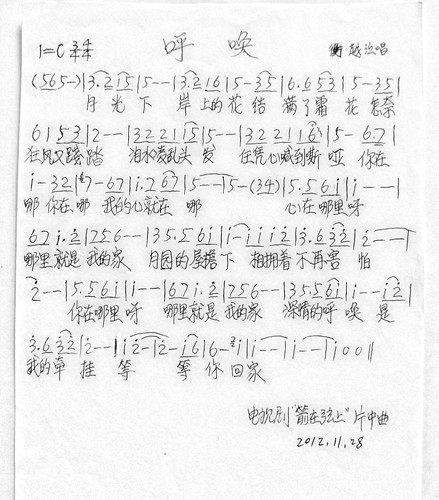 呼唤
1=C 3/4 4/4 越 演唱
(565-)|3.215|5--|3.216|5-35|6.653|5-35|
月光下 岸上的花结满了霜花 怎奈
6153|2--|32215|5--|322116|5-67|
狂风又蹂踏 泪水凌乱头发 任凭心喊到嘶哑 你在
i-32|7-67|i.767|5--|5-(34)|5.56i|i--|
哪 你在哪 我的心就在哪 心在哪里呀
67i.2|756--|35.56i|i-iii2|3.632|2--|
哪里就是我的家 月圆的屋檐下 相拥着不再害怕
2--|5.56i|i--|67i.2|756--|35.56i|i--i2|
你在哪里呀 哪里就是我的家 深情的呼唤是
3.632|2--|i2-|2-i6|6-i|i--|i--|i00||
我的牵挂 等 等你回家
电视剧"箭在弦上"片中曲
2012.11.28